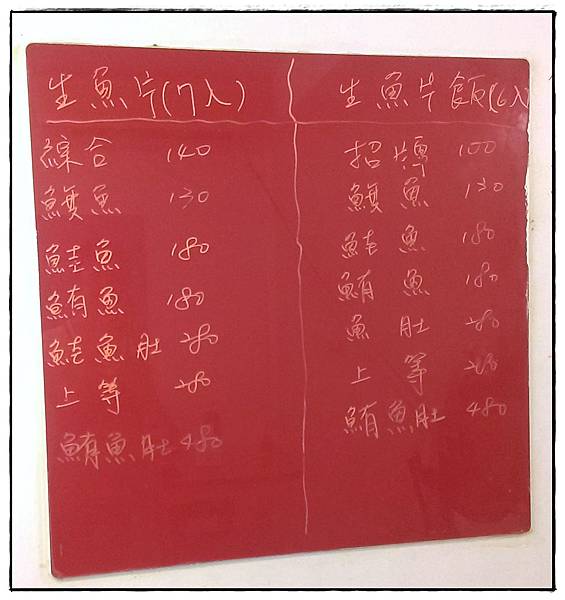 生魚片(7入)
綜合 140
鱆魚 130
鮭魚 180
鮪魚 180
鮭魚肚 280
上等 280
鮪魚肚 480
生魚片飯(6入)
招牌 100
魚 130
鮭魚 180
鮪魚 180
魚肚 280
上等 280
鮪魚肚 480